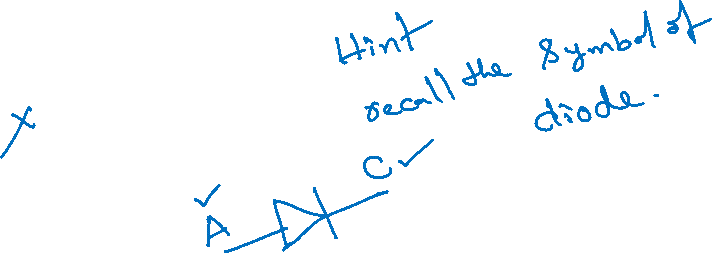 Hint
recall the symbol of
diode.
x
C ✓
✓
A